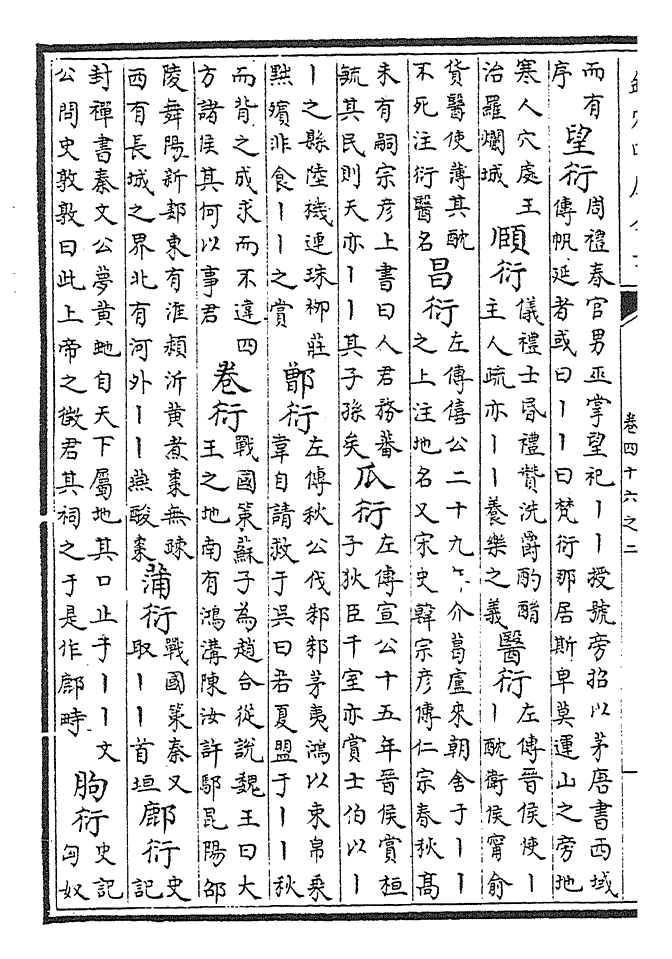 卷四十六之二
而有序望衍周禮春官男巫掌望祀丨丨授號旁招以茅唐書西域傳帆延者或曰丨丨曰梵衍那居斯卑莫運山之旁地
寒人穴處王治羅爛城頤衍儀禮士昏禮贊洗爵酌酳主人疏亦丨丨養樂之義醫衍左傳晉侯使丨丨酖衛侯甯俞
貨醫使薄其酖不死注衍醫名昌衍左傳僖公二十九年介葛盧來朝舍于丨丨之上注地名又宋史韓宗彦傳仁宗春秋髙
未有嗣宗彦上書曰人君務蕃毓其民則天亦丨丨其子孫矣瓜衍左傳宣公十五年晉侯賞桓子狄臣千室亦賞士伯以丨
丨之縣陸機連珠柳莊黜殯非食丨丨之賞鄫衍左傳秋公伐邾邾茅夷鴻以束帛乘韋自請救于吳曰君夏盟于丨丨秋
而背之成求而不違四方諸侯其何以事君卷衍戰國策蘇子為趙合從說魏王曰大王之地南有鴻溝陳汝許鄢昆陽邵
陵舞陽新郪東有淮頴沂黄煮棗無疎西有長城之界北有河外丨丨燕酸棗蒲衍戰國策秦又取丨丨首垣鄜衍史記
封禪書秦文公夢黄虵自天下屬地其口止于丨丨文公問史敦敦曰此上帝之徵君其祠之于是作鄜畤朐衍史記匈奴